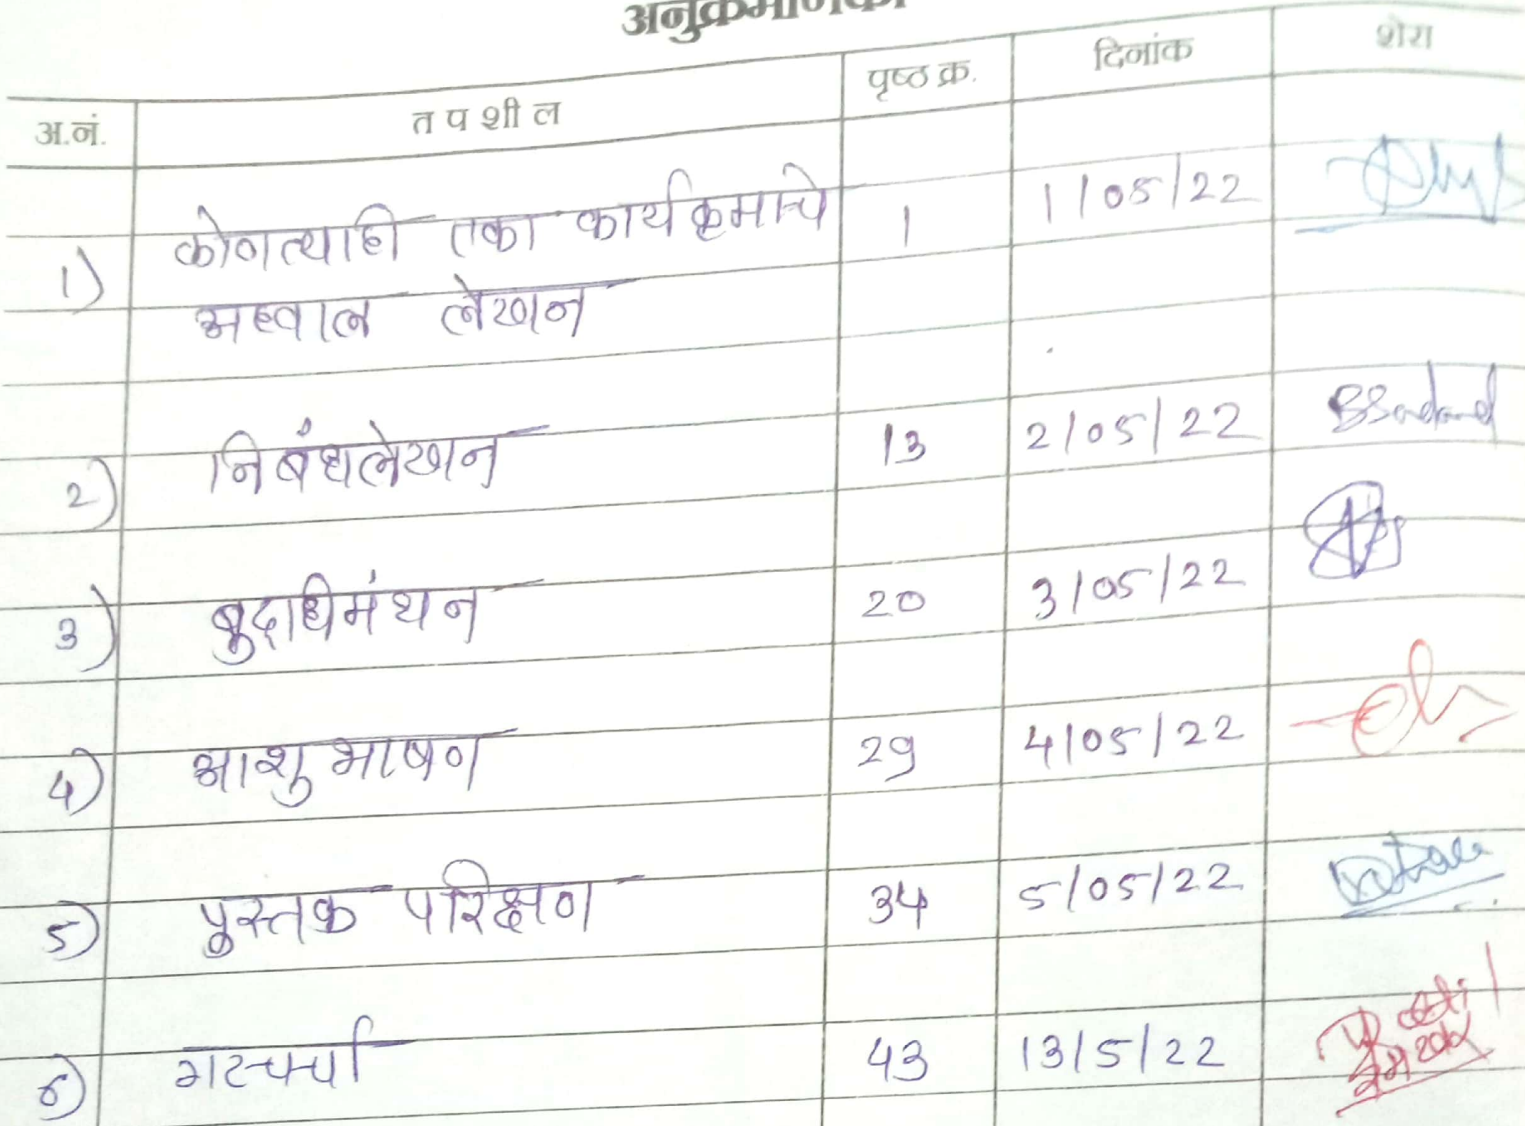 अनुक्रमणिका
अ.नं. तपशील पृष्ठ क्र. दिनांक शेरा
1) कोणत्याही एका कार्यक्रमाचे 1 1/05/22
अहवाल लेखन
2) निबंधलेखन 13 2/05/22
3) बुद्धिमंथन 20 3/05/22
4) आशुभाषण 29 4/05/22
5) पुस्तक परिक्षण 34 5/05/22
6) गटचर्चा 43 13/5/22